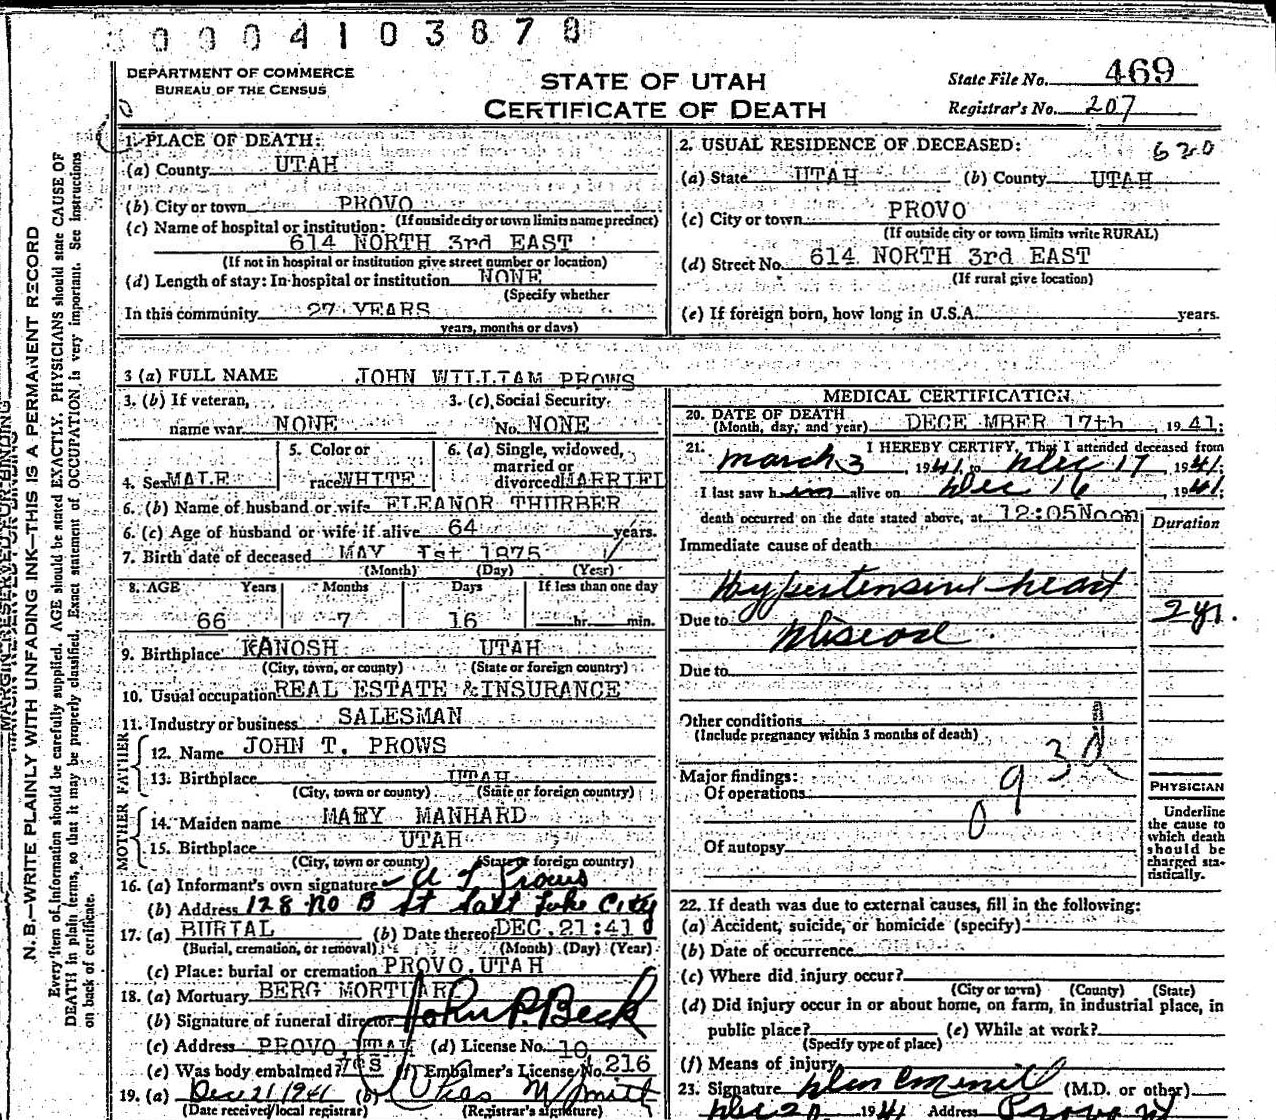 0004103878
DEPARTMENT OF COMMERCE
BUREAU OF THE CENSUS
STATE OF UTAH
CERTIFICATE OF DEATH
State File No. 469
Registrar's No. 207
MARGIN RESERVED FOR BINDING
N. B.—WRITE PLAINLY WITH UNFADING INK—THIS IS A PERMANENT RECORD
Every item of information should be carefully supplied. AGE should be stated EXACTLY. PHYSICIANS should state CAUSE OF
DEATH in plain terms, so that it may be properly classified. Exact statement of OCCUPATION is very important. See instructions
on back of certificate.
1. PLACE OF DEATH:
(a) County UTAH
(b) City or town PROVO
(If outside city or town limits name precinct)
(c) Name of hospital or institution:
614 NORTH 3rd EAST
(If not in hospital or institution give street number or location)
(d) Length of stay: In hospital or institution NONE
(Specify whether
In this community 27 YEARS
years, months or days)
2. USUAL RESIDENCE OF DECEASED: 620
(a) State UTAH (b) County UTAH
(c) City or town PROVO
(If outside city or town limits write RURAL)
(d) Street No. 614 NORTH 3rd EAST
(If rural give location)
(e) If foreign born, how long in U.S.A. years.
3 (a) FULL NAME JOHN WILLIAM PROWS
3. (b) If veteran, 3. (c) Social Security
name war NONE No. NONE
5. Color or 6. (a) Single, widowed,
married or
4. Sex MALE race WHITE divorced MARRIED
6. (b) Name of husband or wife ELEANOR THURBER
6. (c) Age of husband or wife if alive 64 years.
7. Birth date of deceased MAY Ist 1875
(Month) (Day) (Year)
8. AGE Years Months Days If less than one day
66 7 16 hr. min.
9. Birthplace KANOSH UTAH
(City, town, or county) (State or foreign country)
10. Usual occupation REAL ESTATE & INSURANCE
11. Industry or business SALESMAN
FATHER
12. Name JOHN T. PROWS
13. Birthplace UTAH
(City, town or county) (State or foreign country)
MOTHER
14. Maiden name MARY MANHARD
15. Birthplace UTAH
(City, town or county) (State or foreign country)
16. (a) Informant's own signature Prows
(b) Address 128 No B St Salt Lake City
17. (a) BURIAL (b) Date thereof DEC. 21:41
(Burial, cremation, or removal) (Month) (Day) (Year)
(c) Place: burial or cremation PROVO, UTAH
18. (a) Mortuary BERG MORTUARY
(b) Signature of funeral director John P. Beck
(c) Address PROVO, UTAH (d) License No. 10
(e) Was body embalmed? yes (f) Embalmer's License No. 216
19. (a) Dec 21 1941 (b) Smith
(Date received local registrar) (Registrar's signature)
MEDICAL CERTIFICATION
20. DATE OF DEATH
(Month, day, and year) DECEMBER 17th, 1941;
21. I HEREBY CERTIFY, That I attended deceased from
March 3, 1941, to Dec 17, 1941;
I last saw him alive on Dec 16, 1941;
death occurred on the date stated above, at 12:05 Noon
Duration
Immediate cause of death
Hypertensive heart
Due to Disease 2 yr.
Due to
Other conditions
(Include pregnancy within 3 months of death)
Major findings:
Of operations
093d
Of autopsy
PHYSICIAN
Underline
the cause to
which death
should be
charged sta-
tistically.
22. If death was due to external causes, fill in the following:
(a) Accident, suicide, or homicide (specify)
(b) Date of occurrence
(c) Where did injury occur?
(City or town) (County) (State)
(d) Did injury occur in or about home, on farm, in industrial place, in
public place? (e) While at work?
(Specify type of place)
(f) Means of injury
23. Signature (M.D. or other)
Dec 20 1941 Address Provo